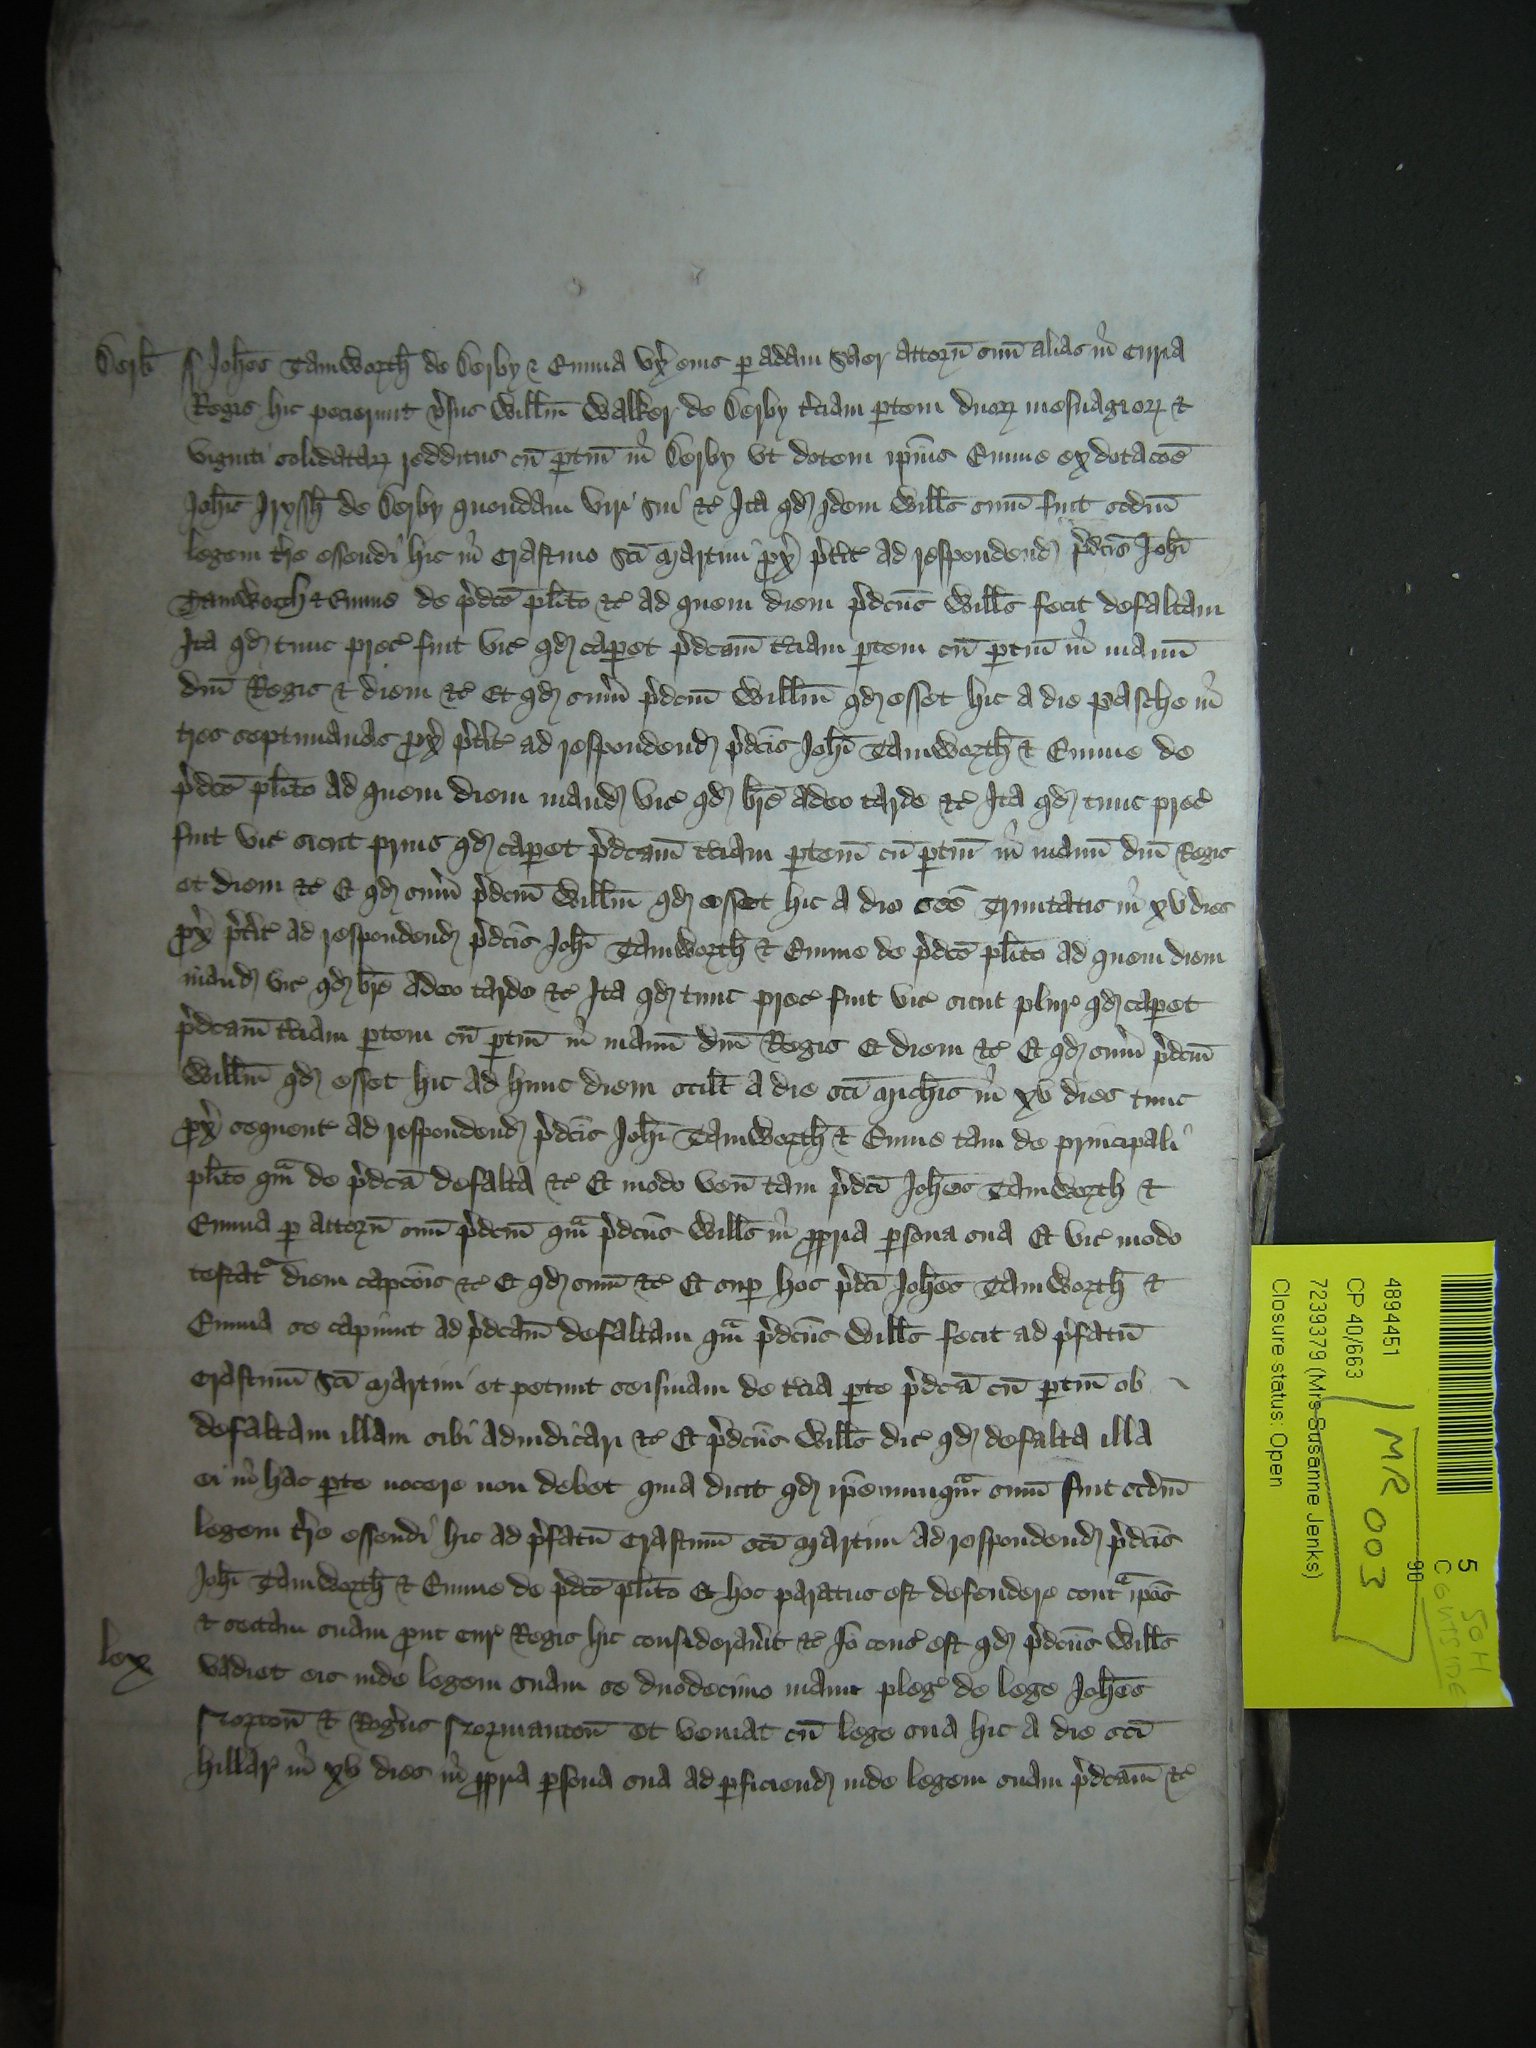 Derb̄ ſ Joh̄es Tamworth̄ de Derby & Emma vx̉ eius ꝑ Adam Saer attorñ suū alias in̉ curia
Regis hic petierunt v̉sus Willm̄ Walker de Derby t̉ciam ꝑtem duoꝝ mesuagioꝝ &
viginti solidataꝝ redditus cū ꝑtin̄ in̉ Derby vt dotem ip̄ius Emme ex dotac̄oe
Joh̄is Iryssh̄ de Derby quondam viri sui &c̄ Ita qd̄ idem Wills̄ sum̄ fuit scdm̄
legem t̉re essendi hic in̉ Crastino Sc̄i Martini ꝓx̉ p̉t̉it̄ ad respondend̄ p̉dcīs Joh̄i
Tamworth & Emme de p̉dcō pl̄ito &c̄ ad quem diem p̉dcūs Wills̄ fecit defaltam
Ita qd̄ tunc prec̄ fuit vic̄ qd̄ cap̉et p̉dcām t̉ciam ꝑtem cū ꝑtin̄ in̉ manū
dn̄i Regis & diem &c̄ Et qd̄ sum̄ p̉dcm̄ Willm̄ qd̄ esset hic a die Pasche in̉
tres septimanas ꝓx̉ p̉t̉it̄ ad respondend̄ p̉dcīs Joh̄i Tamworth̄ & Emme de
p̉dcō pl̄ito ad quem diem mand̄ vic̄ qd̄ br̄e adeo tarde &c̄ Ita qd̄ tunc prec̄
fuit vic̄ sicut prius qd̄ cap̉et p̉dcām t̉ciam ꝑtem cū ꝑtin̄ in̉ manū dn̄i Regis
et diem &c̄ Et qd̄ sum̄ p̉dcm̄ Willm̄ qd̄ esset hic a die sc̄e Trinitatis in̉ xv dies
ꝓx̉ p̉t̉it̄ ad respondend̄ p̉dcīs Joh̄i Tamworth̄ & Emme de p̉dcō pl̄ito ad quem diem
mand̄ vic̄ qd̄ br̄e adeo tarde &c̄ Ita qd̄ tunc prec̄ fuit vic̄ sicut plur̄ qd̄ cap̉et
p̉dcām t̉ciam ꝑtem cū ꝑtin̄ in̉ manū dn̄i Regis Et diem &c̄ Et qd̄ sum̄ p̉dcm̄
Willm̄ qd̄ esset hic ad hunc diem scil̄t a die sc̄i Mich̄is in̉ xv dies tunc
ꝓx̉ sequent̄ ad respondend̄ p̉dcīs Joh̄i Tamworth̄ & Emme tam de principali
pl̄ito qm̄ de p̉dcā defalta &c̄ Et modo ven̄ tam p̉dcī Joh̄es Tamworth &
Emma ꝑ attorñ suū p̉dcm̄ qm̄ p̉dcūs Wills̄ in̉ ꝓpria ꝑsona sua Et vic̄ modo
testat᷑ diem capc̄ois &c̄ Et qd̄ sum̄ &c̄ Et suꝑ hoc p̉dcī Joh̄es Tamworth̄ &
Emma se capiunt ad p̉dcām defaltam qm̄ p̉dcūs Wills̄ fecit ad p̉fatū
Crastinū Sc̄i Martini et petunt seisinam de t̉cia ꝑte p̉dcā cū ꝑtin̄ ob
defaltam illam sibi adiudicari &c̄ Et p̉dcūs Wills̄ dic̄ qd̄ defalta illa
ei in̉ hac ꝑte nocere non debet quia dicit qd̄ ip̄e nunqm̄ sum̄ fuit scdm̄
legem t̉re essendi hic ad p̉fatū Crastinū sc̄i Martini ad respondend̄ p̉dcīs
Joh̄i Tamworth̄ & Emme de p̉dcō pl̄ito Et hoc paratus est defendere contᵃ ip̄os
& sectam suam ꝓut cur̄ Regis hic considerav̉it &c̄ Iō cons̄ est qd̄ p̉dcūs Wills̄
lex vadiet eis inde legem suam se duodecimo manu pleḡ de lege Joh̄es
Norton̄ & Rogerus Normanton̄ et veniat cū lege sua hic a die sc̄i
Hillar̄ in̉ xv dies in̉ ꝓpria ꝑsona sua ad ꝑficiend̄ inde legem suam p̉dcām &c̄
4894451
CP 40/663
7239379 (Mrs Susanne Jenks)
Closure status: Open
MR 003
90
5
C
SOH
OUTSIDE